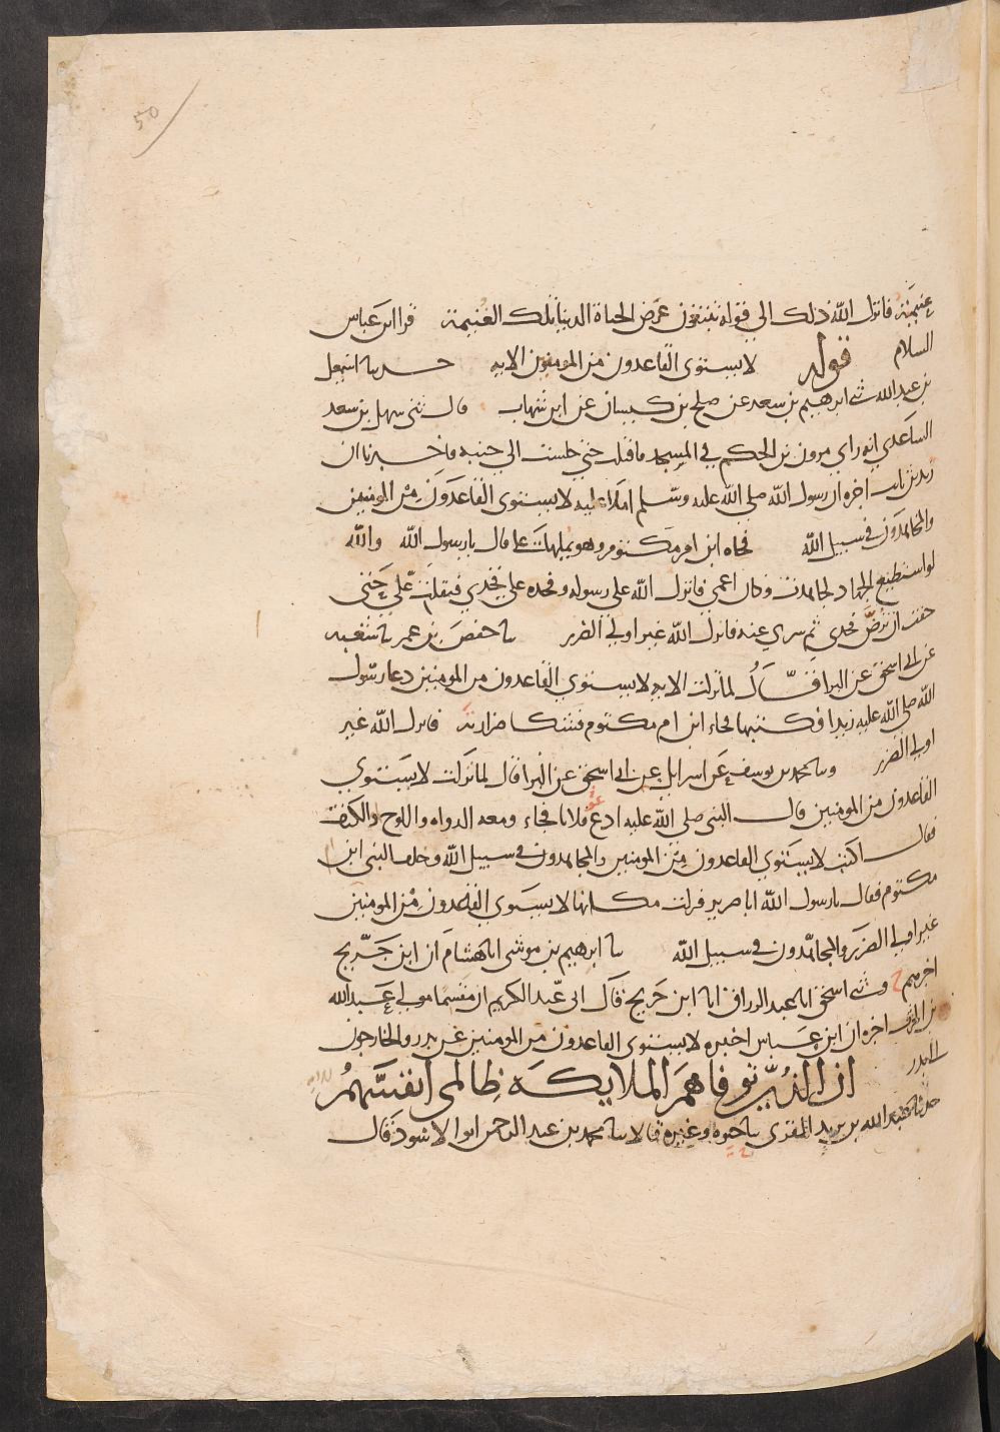 50
غنيمته فانزل الله ذلك الي قوله تبتغون عرض الحياة الدنيا تلك الغنيمة قرا ابن عباس
السلام قوله لا يستوي القاعدون من المومنين الايه حدثنا اسمعيل
بن عبد الله ثني ابرهيم بن سعد عن صلح بن كيسان عن ابن شهاب قال ثني سهل بن سعد
الساعدي انه راي مرون بن الحكم في المسجد فاقبلت حتي جلست الي جنبه فاخبرنا ان
زيد بن ثابت اخبره ان رسول الله صلي الله عليه وسلم املا عليه لا يستوي القاعدون من المومنين
والمجاهدون في سبيل الله فجاه ابن ام مكتوم وهو يملها علي قال يا رسول الله والله
لو استطيع الجهاد لجاهدت وكان اعمي فانزل الله علي رسوله وفخده علي فخدي فثقلت علي حتي
خفت ان ترض فخدي ثم سري عنه فانزل الله غير اولي الضرر نا حفص بن عمر نا شعبه
عن ابي اسحق عن البرا قال لما نزلت الايه لا يستوي القاعدون من المومنين دعا رسول
الله صلي الله عليه زيدا فكتبها فجاء ابن ام مكتوم فشكا ضرارته فانزل الله غير
اولي الضرر ونا محمد بن يوسف عن اسرايل عن ابي اسحق عن البرا قال لما نزلت لا يستوي
القاعدون من المومنين قال النبي صلي الله عليه ادع فلانا فجاء ومعه الدواه واللوح والكتف
فقال اكتب لا يستوي القاعدون من المومنين والمجاهدون في سبيل الله وخلف النبي ابن
مكتوم فقال يا رسول الله انا ضرير فنزلت مكانها لا يستوي القعدون من المومنين
غير اولي الضرر والمجاهدون في سبيل الله نا ابرهيم بن موسي انا هشام ان ابن جريج
اخبرهم ح وثني اسحق انا عبد الرزاق انا ابن جريج قال اني عبد الكريم ان مقسما مولي عبد الله
بن الحرث اخبره ان ابن عباس اخبره لا يستوي القاعدون من المومنين عن بدر والخارجون
الي بدر ان الذين توفاهم الملايكه ظالمي انفسهم
حدثنا عبد الله بن يزيد المقري نا حيوه وغيره قالا نا محمد بن عبد الرحمن ابو الاسود قال